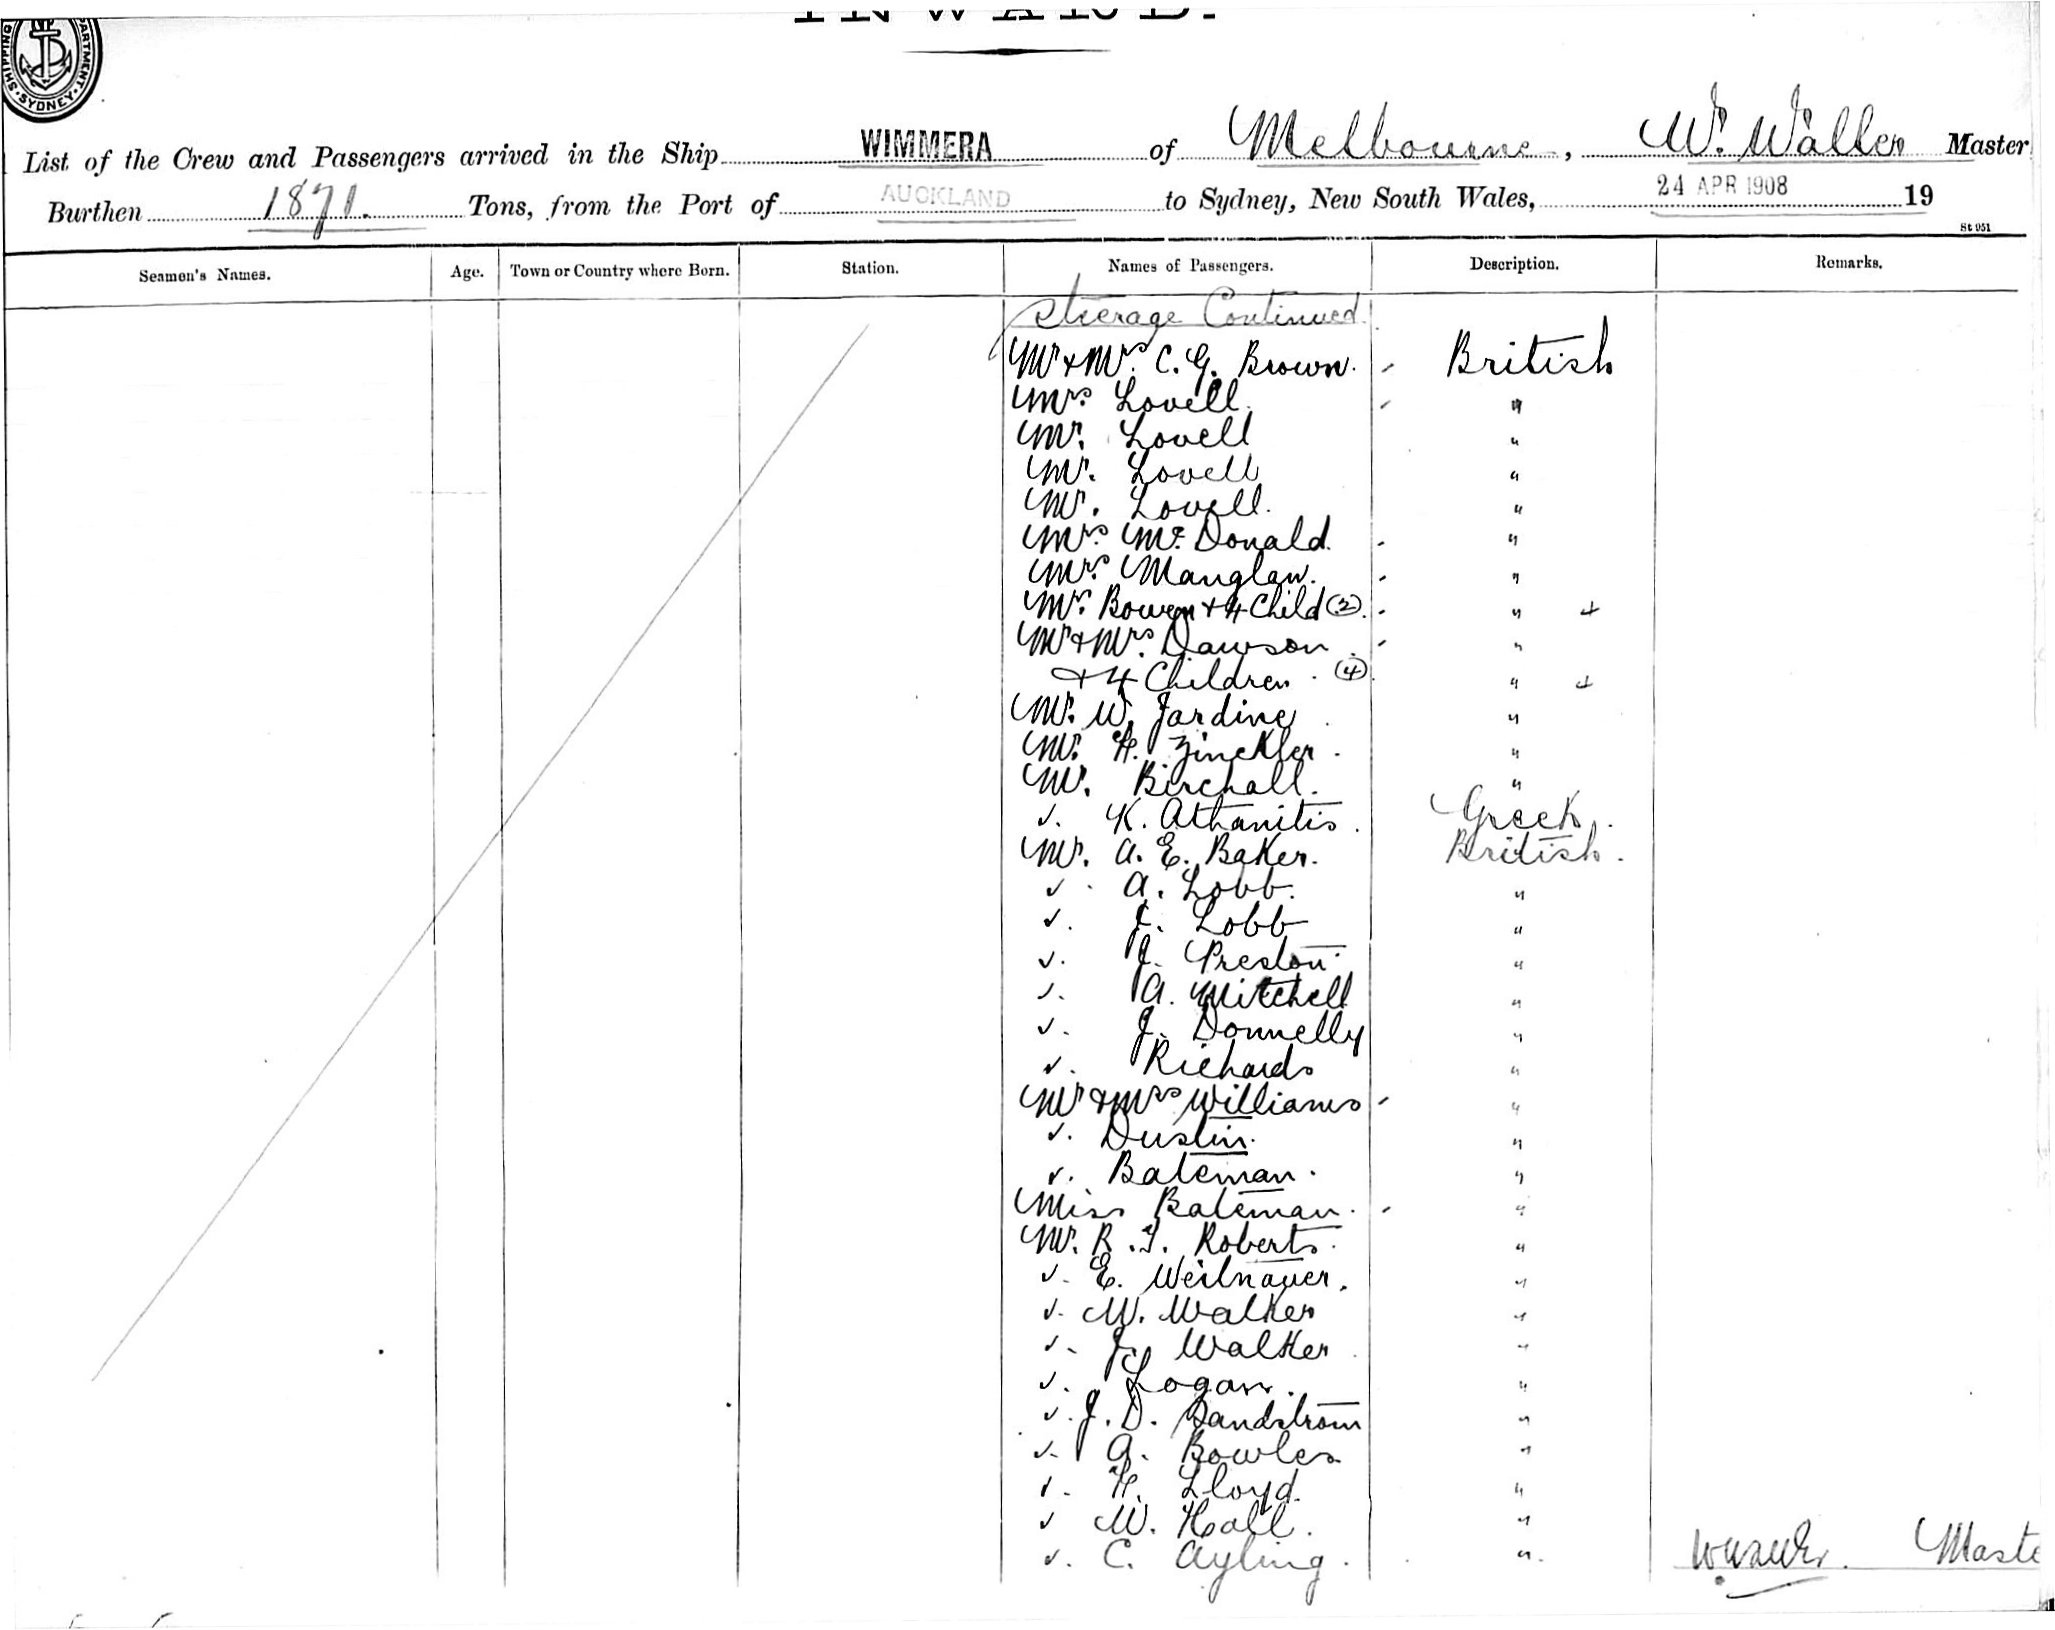 INWARD.
SHIPPING DEPARTMENT SYDNEY
List of the Crew and Passengers arrived in the Ship WIMMERA of Melbourne, W. Waller Master
Burthen 1871. Tons, from the Port of AUCKLAND to Sydney, New South Wales, 24 APR 1908 19
St 951
Seamen's Names. Age. Town or Country where Born. Station. Names of Passengers. Description. Remarks.
Steerage Continued
Mr & Mrs. C. G. Brown. British
Mrs. Lovell. "
Mr. Lovell "
Mr. Lovell "
Mr. Lovell. "
Mrs. Mc. Donald. "
Mrs. Manglaw. "
Mr. Bowen & 4 Child (2). " +
Mr & Mrs. Dawson. "
& 4 Children. (4). " +
Mr. W. Jardine "
Mr. H. Zinckler. "
Mr. Birchall. "
✓. K. Athanitis. Greek.
Mr. A. E. Baker. British.
✓. A. Lobb. "
✓. J. Lobb "
✓. J. Preston. "
✓. A. Mitchell "
✓. J. Donnelly "
✓. Richards "
Mr & Mrs Williams "
✓. Dustin. "
✓. Bateman. "
Miss Bateman. "
Mr. R. T. Roberts. "
✓. E. Weilnauer. "
✓. W. Walker "
✓. J. Walker "
✓. Logan. "
✓. J. D. Sandstrom "
✓. A. Bowles "
✓. H. Lloyd. "
✓ W. Hall. "
✓. C. Ayling. " Maste